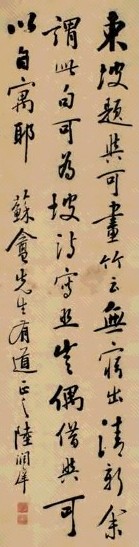 東坡題與可畫竹云無窮出清新余
謂此句可為坡詩寫照豈偶借與可
以自寓耶 蘇盦先生有道正之 陸潤庠